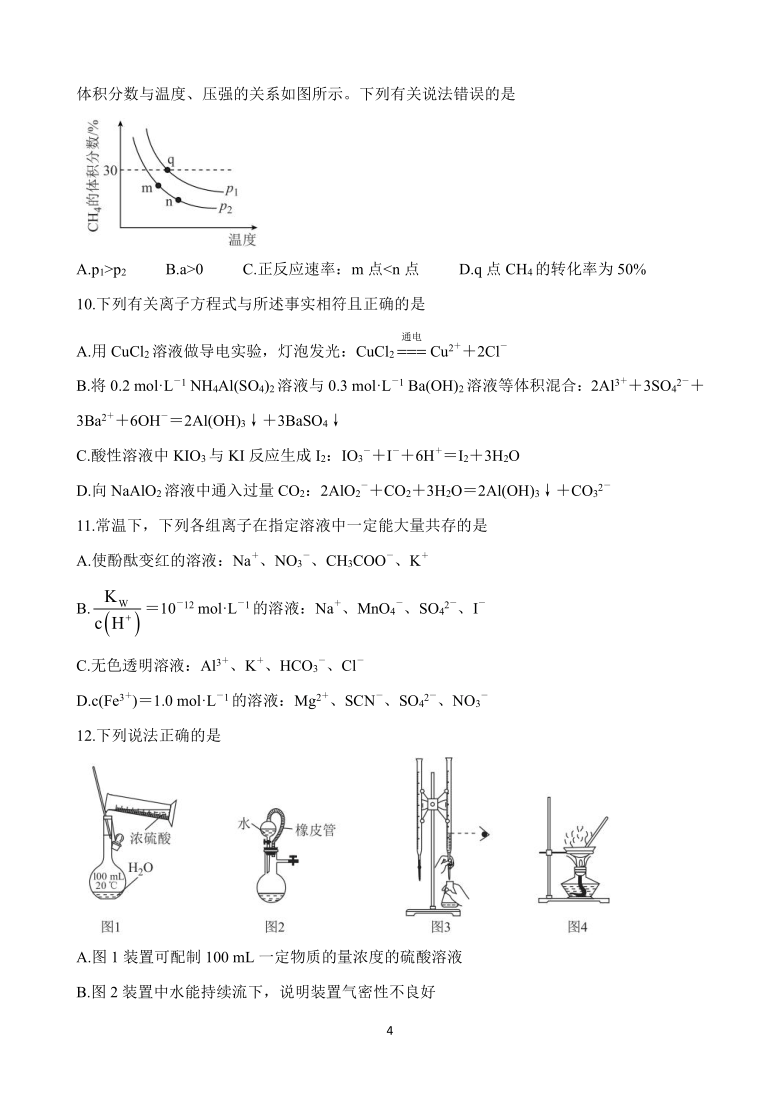 体积分数与温度、压强的关系如图所示。下列有关说法错误的是
CH₄的体积分数/%
30
q
m
n
p₁
p₂
温度
A.p₁>p₂ B.a>0 C.正反应速率：m 点<n 点 D.q 点 CH₄的转化率为 50%
10.下列有关离子方程式与所述事实相符且正确的是
A.用 CuCl₂溶液做导电实验，灯泡发光：CuCl₂ =通电= Cu²⁺＋2Cl⁻
B.将 0.2 mol·L⁻¹ NH₄Al(SO₄)₂溶液与 0.3 mol·L⁻¹ Ba(OH)₂溶液等体积混合：2Al³⁺＋3SO₄²⁻＋
3Ba²⁺＋6OH⁻＝2Al(OH)₃↓＋3BaSO₄↓
C.酸性溶液中 KIO₃与 KI 反应生成 I₂：IO₃⁻＋I⁻＋6H⁺＝I₂＋3H₂O
D.向 NaAlO₂溶液中通入过量 CO₂：2AlO₂⁻＋CO₂＋3H₂O＝2Al(OH)₃↓＋CO₃²⁻
11.常温下，下列各组离子在指定溶液中一定能大量共存的是
A.使酚酞变红的溶液：Na⁺、NO₃⁻、CH₃COO⁻、K⁺
B. K_W/c(H⁺) ＝10⁻¹² mol·L⁻¹的溶液：Na⁺、MnO₄⁻、SO₄²⁻、I⁻
C.无色透明溶液：Al³⁺、K⁺、HCO₃⁻、Cl⁻
D.c(Fe³⁺)＝1.0 mol·L⁻¹的溶液：Mg²⁺、SCN⁻、SO₄²⁻、NO₃⁻
12.下列说法正确的是
浓硫酸
H₂O
100 mL
20℃
图1
水
橡皮管
图2
图3
图4
A.图 1 装置可配制 100 mL 一定物质的量浓度的硫酸溶液
B.图 2 装置中水能持续流下，说明装置气密性不良好
4